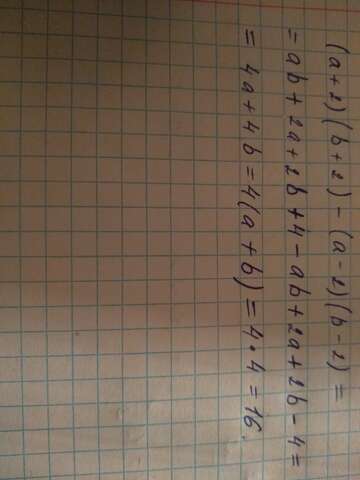 (a+2)(b+2)-(a-2)(b-2)=
=ab+2a+2b+4-ab+2a+2b-4=
=4a+4b=4(a+b)=4·4=16.